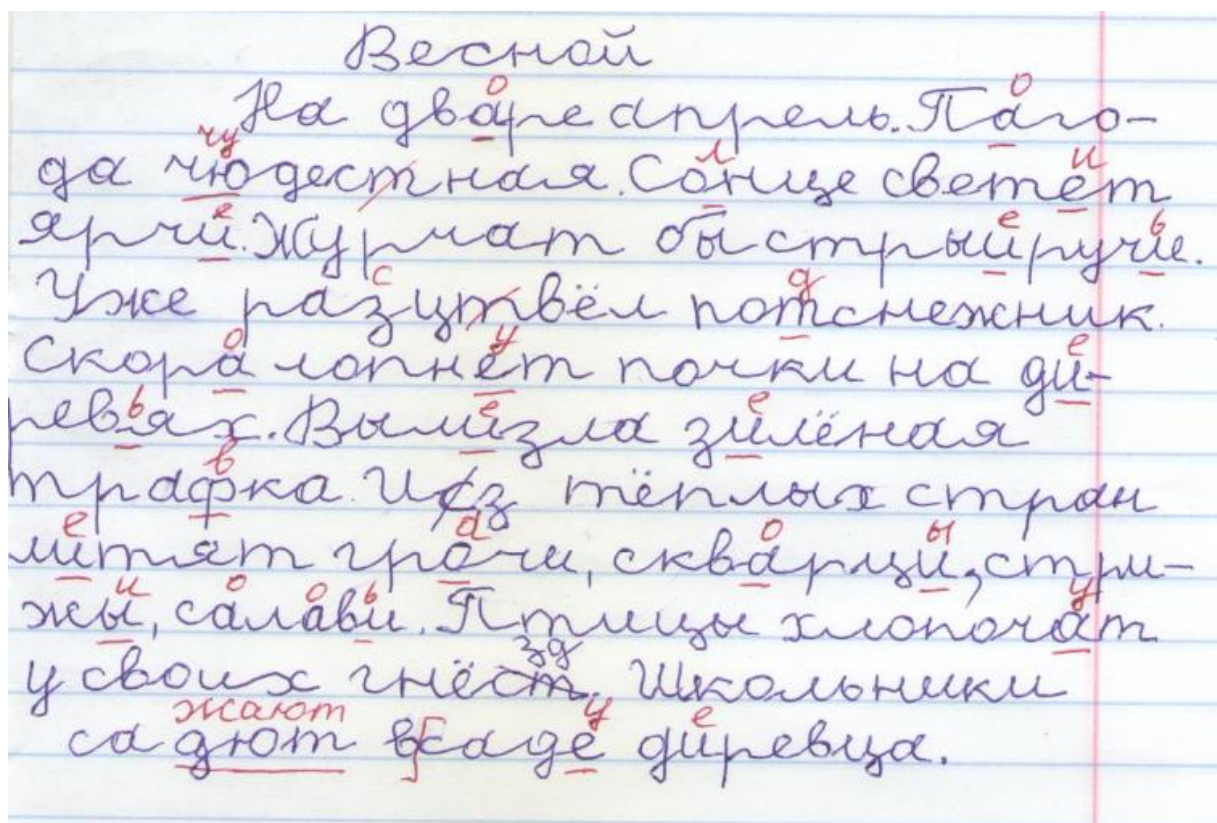 Весной
На дваре апрель. Паго-
да чюдестная. Сонце светет
ярчи. Журчат быстрый ручи.
Уже разцтвёл потснежник.
Скора лопнет почки на ди-
ревях. Вылизла зилёная
трафка. Из тёплых стран
литят грочи, скварци, стри-
жы, салави. Птицы хлопочат
у своих гнёст. Школьники
садют всаде диревца.